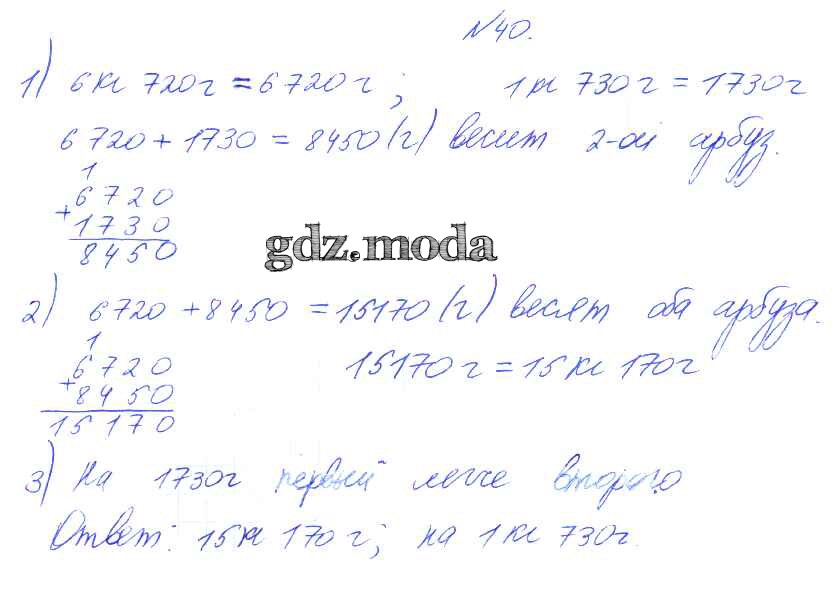 №40.
1) 6кг 720г = 6720г; 1кг 730г = 1730г
6720 + 1730 = 8450(г) весит 2-ой арбуз.
1
6720
+
1730
8450
gdz.moda
2) 6720 + 8450 = 15170(г) весят оба арбуза.
1
6720
+
8450
15170
15170г = 15кг 170г
3) На 1730г первый легче второго
Ответ: 15кг 170г; на 1кг 730г.